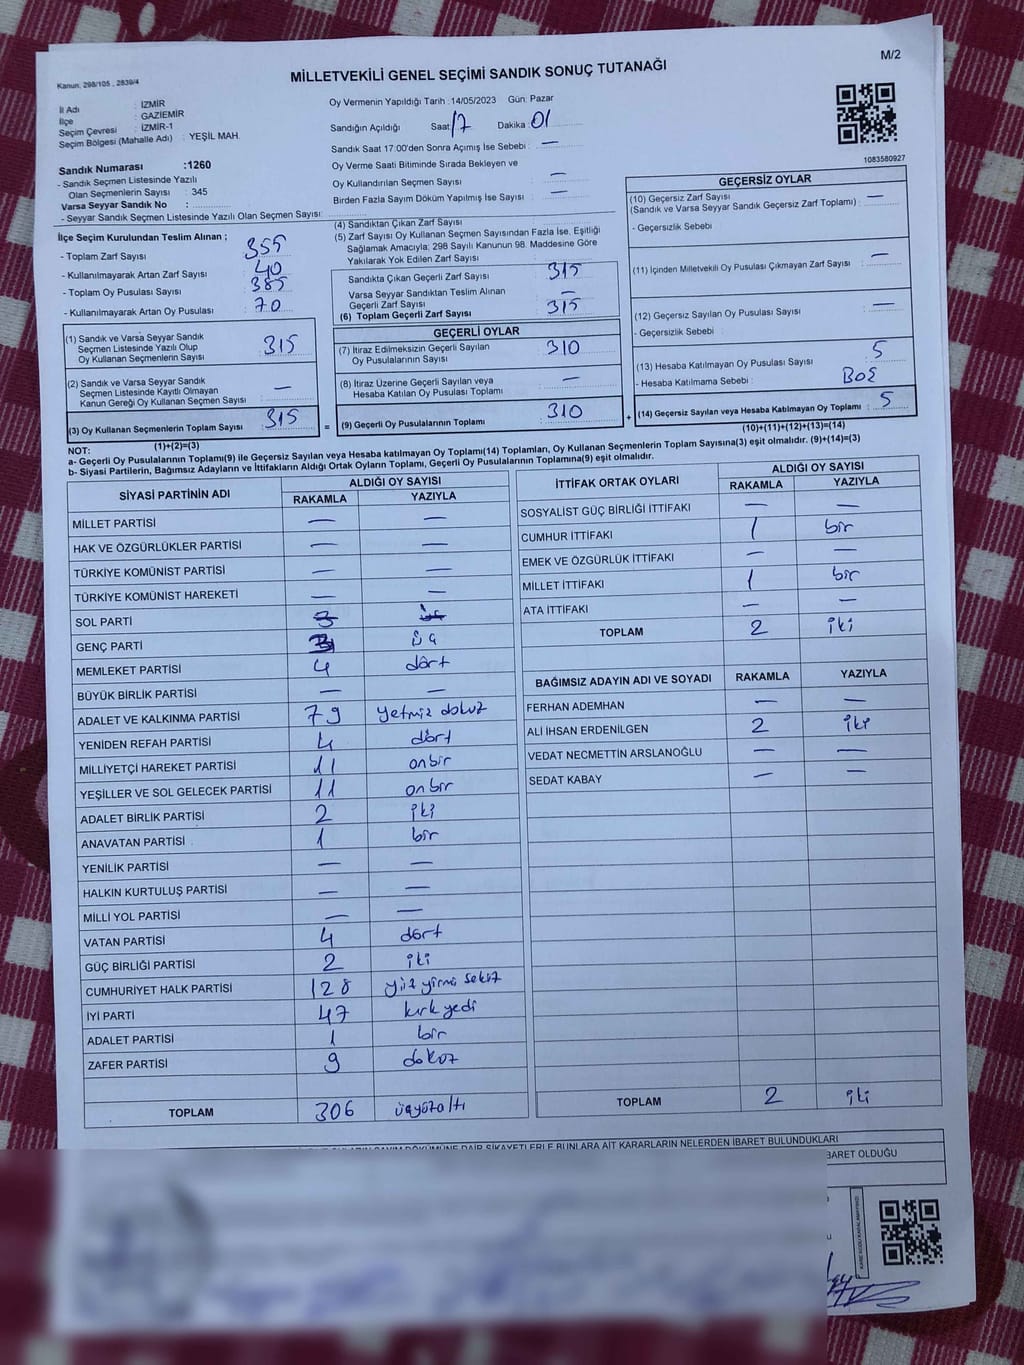 M/2
Kanun: 298/105 , 2839/4
MİLLETVEKİLİ GENEL SEÇİMİ SANDIK SONUÇ TUTANAĞI
İl Adı : İZMİR
İlçe : GAZİEMİR
Seçim Çevresi : İZMİR-1
Seçim Bölgesi (Mahalle Adı) : YEŞİL MAH.
Sandık Numarası :1260
- Sandık Seçmen Listesinde Yazılı
Olan Seçmenlerin Sayısı : 345
Varsa Seyyar Sandık No :
- Seyyar Sandık Seçmen Listesinde Yazılı Olan Seçmen Sayısı:
Oy Vermenin Yapıldığı Tarih :14/05/2023 Gün: Pazar
Sandığın Açıldığı Saat: 17 Dakika :01
Sandık Saat 17:00'den Sonra Açımış İse Sebebi : —
Oy Verme Saati Bitiminde Sırada Bekleyen ve
Oy Kullandırılan Seçmen Sayısı : —
Birden Fazla Sayım Döküm Yapılmış İse Sayısı : —
1083580927
İlçe Seçim Kurulundan Teslim Alınan ;
- Toplam Zarf Sayısı : 355
- Kullanılmayarak Artan Zarf Sayısı : 40
- Toplam Oy Pusulası Sayısı : 385
- Kullanılmayarak Artan Oy Pusulası : 70
(1) Sandık ve Varsa Seyyar Sandık
Seçmen Listesinde Yazılı Olup
Oy Kullanan Seçmenlerin Sayısı : 315
(2) Sandık ve Varsa Seyyar Sandık
Seçmen Listesinde Kayıtlı Olmayan
Kanun Gereği Oy Kullanan Seçmen Sayısı : —
(3) Oy Kullanan Seçmenlerin Toplam Sayısı : 315
(1)+(2)=(3)
(4) Sandıktan Çıkan Zarf Sayısı :
(5) Zarf Sayısı Oy Kullanan Seçmen Sayısından Fazla İse, Eşitliği
Sağlamak Amacıyla; 298 Sayılı Kanunun 98. Maddesine Göre
Yakılarak Yok Edilen Zarf Sayısı :
Sandıkta Çıkan Geçerli Zarf Sayısı : 315
Varsa Seyyar Sandıktan Teslim Alınan
Geçerli Zarf Sayısı : —
(6) Toplam Geçerli Zarf Sayısı : 315
GEÇERLİ OYLAR
(7) İtiraz Edilmeksizin Geçerli Sayılan
Oy Pusulalarının Sayısı : 310
(8) İtiraz Üzerine Geçerli Sayılan veya
Hesaba Katılan Oy Pusulası Toplamı : —
= (9) Geçerli Oy Pusulalarının Toplamı : 310
GEÇERSİZ OYLAR
(10) Geçersiz Zarf Sayısı
(Sandık ve Varsa Seyyar Sandık Geçersiz Zarf Toplamı) : —
- Geçersizlik Sebebi
(11) İçinden Milletvekili Oy Pusulası Çıkmayan Zarf Sayısı : —
(12) Geçersiz Sayılan Oy Pusulası Sayısı : —
- Geçersizlik Sebebi :
(13) Hesaba Katılmayan Oy Pusulası Sayısı : 5
- Hesaba Katılmama Sebebi : BOŞ
+ (14) Geçersiz Sayılan veya Hesaba Katılmayan Oy Toplamı : 5
(10)+(11)+(12)+(13)=(14)
NOT:
a- Geçerli Oy Pusulalarının Toplamı(9) ile Geçersiz Sayılan veya Hesaba katılmayan Oy Toplamı(14) Toplamları, Oy Kullanan Seçmenlerin Toplam Sayısına(3) eşit olmalıdır. (9)+(14)=(3)
b- Siyasi Partilerin, Bağımsız Adayların ve İttifakların Aldığı Ortak Oyların Toplamı, Geçerli Oy Pusulalarının Toplamına(9) eşit olmalıdır.
SİYASİ PARTİNİN ADI ALDIĞI OY SAYISI
RAKAMLA YAZIYLA
MİLLET PARTİSİ — —
HAK VE ÖZGÜRLÜKLER PARTİSİ — —
TÜRKİYE KOMÜNİST PARTİSİ — —
TÜRKİYE KOMÜNİST HAREKETİ — —
SOL PARTİ 3 üç
GENÇ PARTİ 3 üç
MEMLEKET PARTİSİ 4 dört
BÜYÜK BİRLİK PARTİSİ — —
ADALET VE KALKINMA PARTİSİ 79 yetmiz dokuz
YENİDEN REFAH PARTİSİ 4 dört
MİLLİYETÇİ HAREKET PARTİSİ 11 onbir
YEŞİLLER VE SOL GELECEK PARTİSİ 11 onbir
ADALET BİRLİK PARTİSİ 2 iki
ANAVATAN PARTİSİ 1 bir
YENİLİK PARTİSİ — —
HALKIN KURTULUŞ PARTİSİ — —
MİLLİ YOL PARTİSİ — —
VATAN PARTİSİ 4 dört
GÜÇ BİRLİĞİ PARTİSİ 2 iki
CUMHURİYET HALK PARTİSİ 128 yüz yirmi sekiz
İYİ PARTİ 47 kırk yedi
ADALET PARTİSİ 1 bir
ZAFER PARTİSİ 9 dokuz
TOPLAM 306 üçyüzaltı
İTTİFAK ORTAK OYLARI ALDIĞI OY SAYISI
RAKAMLA YAZIYLA
SOSYALİST GÜÇ BİRLİĞİ İTTİFAKI — —
CUMHUR İTTİFAKI 1 bir
EMEK VE ÖZGÜRLÜK İTTİFAKI — —
MİLLET İTTİFAKI 1 bir
ATA İTTİFAKI — —
TOPLAM 2 iki
BAĞIMSIZ ADAYIN ADI VE SOYADI RAKAMLA YAZIYLA
FERHAN ADEMHAN — —
ALİ İHSAN ERDENİLGEN 2 iki
VEDAT NECMETTİN ARSLANOĞLU — —
SEDAT KABAY — —
TOPLAM 2 iki
DÖKÜMÜNE DAİR ŞİKAYETLERLE BUNLARA AİT KARARLARIN NELERDEN İBARET BULUNDUKLARI
BARET OLDUĞU